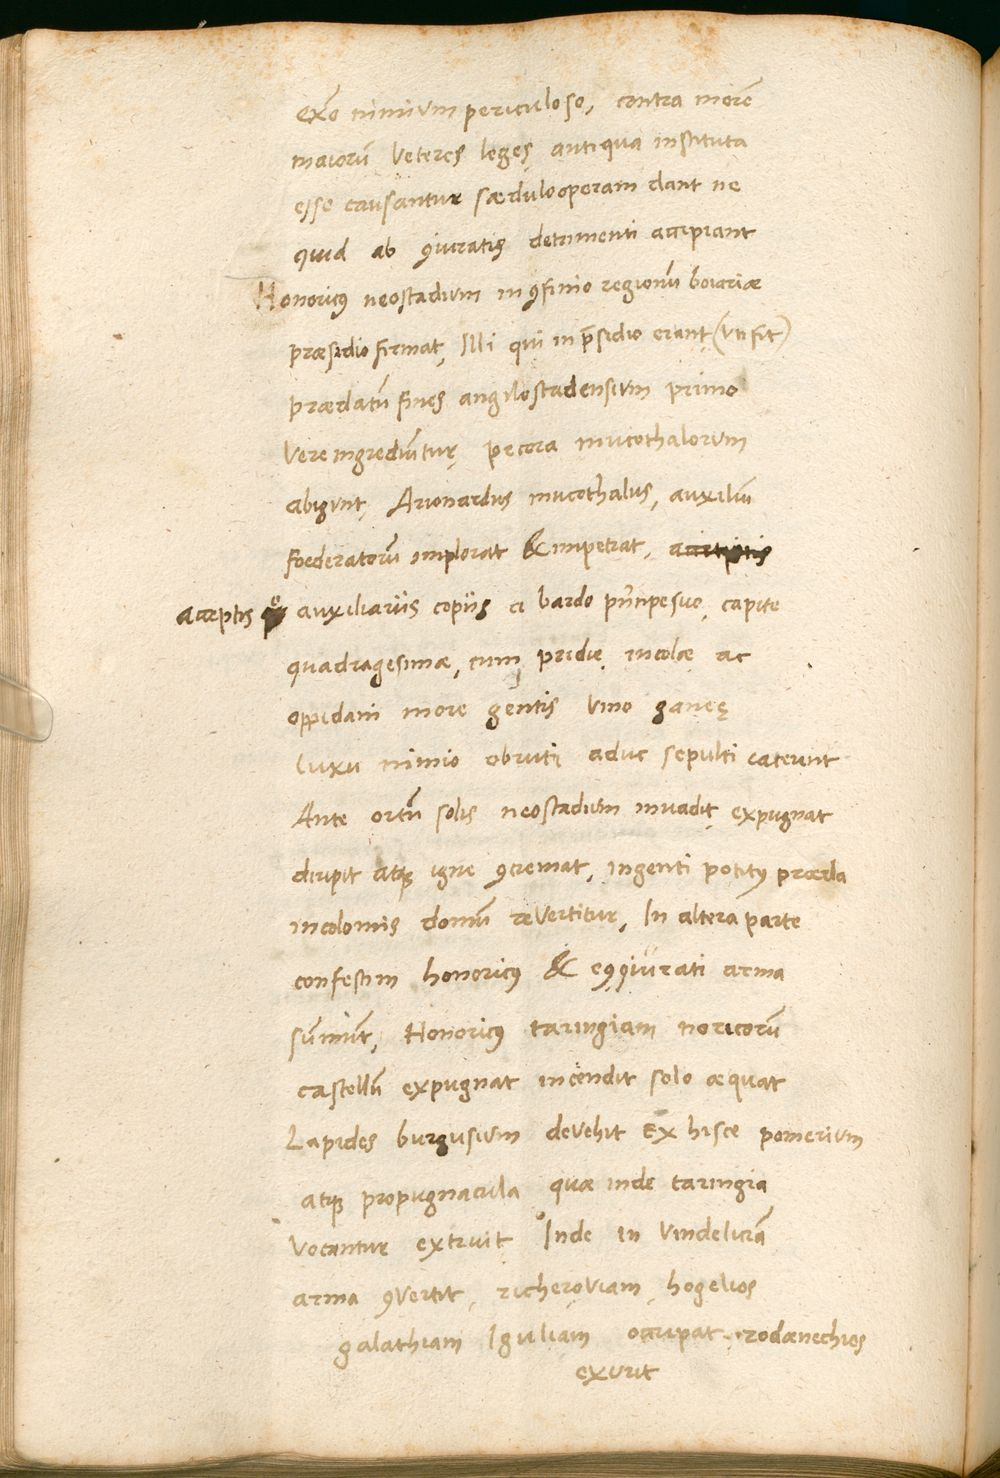 exẽo nimium periculoso, contra morẽ
maiorũ veteres leges antiqua instituta
esse causantur sædulo operam dant ne
quid ab ꝯiuratis detrimenti accipiant
Honoricꝰ neostadium in ꝯfinio regionũ boiariæ
præsidio firmat, Illi qui in p̃sidio erant (vti fit)
prædatũ fines angilostadensium primo
vere ingrediũtur, pecora mucothalorum
abigunt, Arionardus mucothalus, auxiliũ
foederatorũ implorat & impetrat,
acceptis auxiliariis copiis a bardo prĩcipe suo, capite
quadragesimæ, cum pridie incolæ ac
oppidani more gentis vino ganeę
luxu nimio obruti aduc sepulti iacerent
Ante ortũ solis neostadium inuadit, expugnat
diripit atqꝫ igne ꝯcremat, ingenti potitꝰ præda
incolomis domũ revertitur, In altera parte
confestim honoricꝰ & eiꝰ ꝯiurati arma
sũmũt, Honoricꝰ taringiam noricorũ
castellũ expugnat incendit solo æquat
Lapides burgusium devehit Ex hisce pomerium
atqꝫ propugnacula quæ inde taringia
vocantur extruit Inde in vindeliciã
arma ꝯvertit, richeroviam, hogelios
galathiam Iguliam occupat rodænechios
exurit